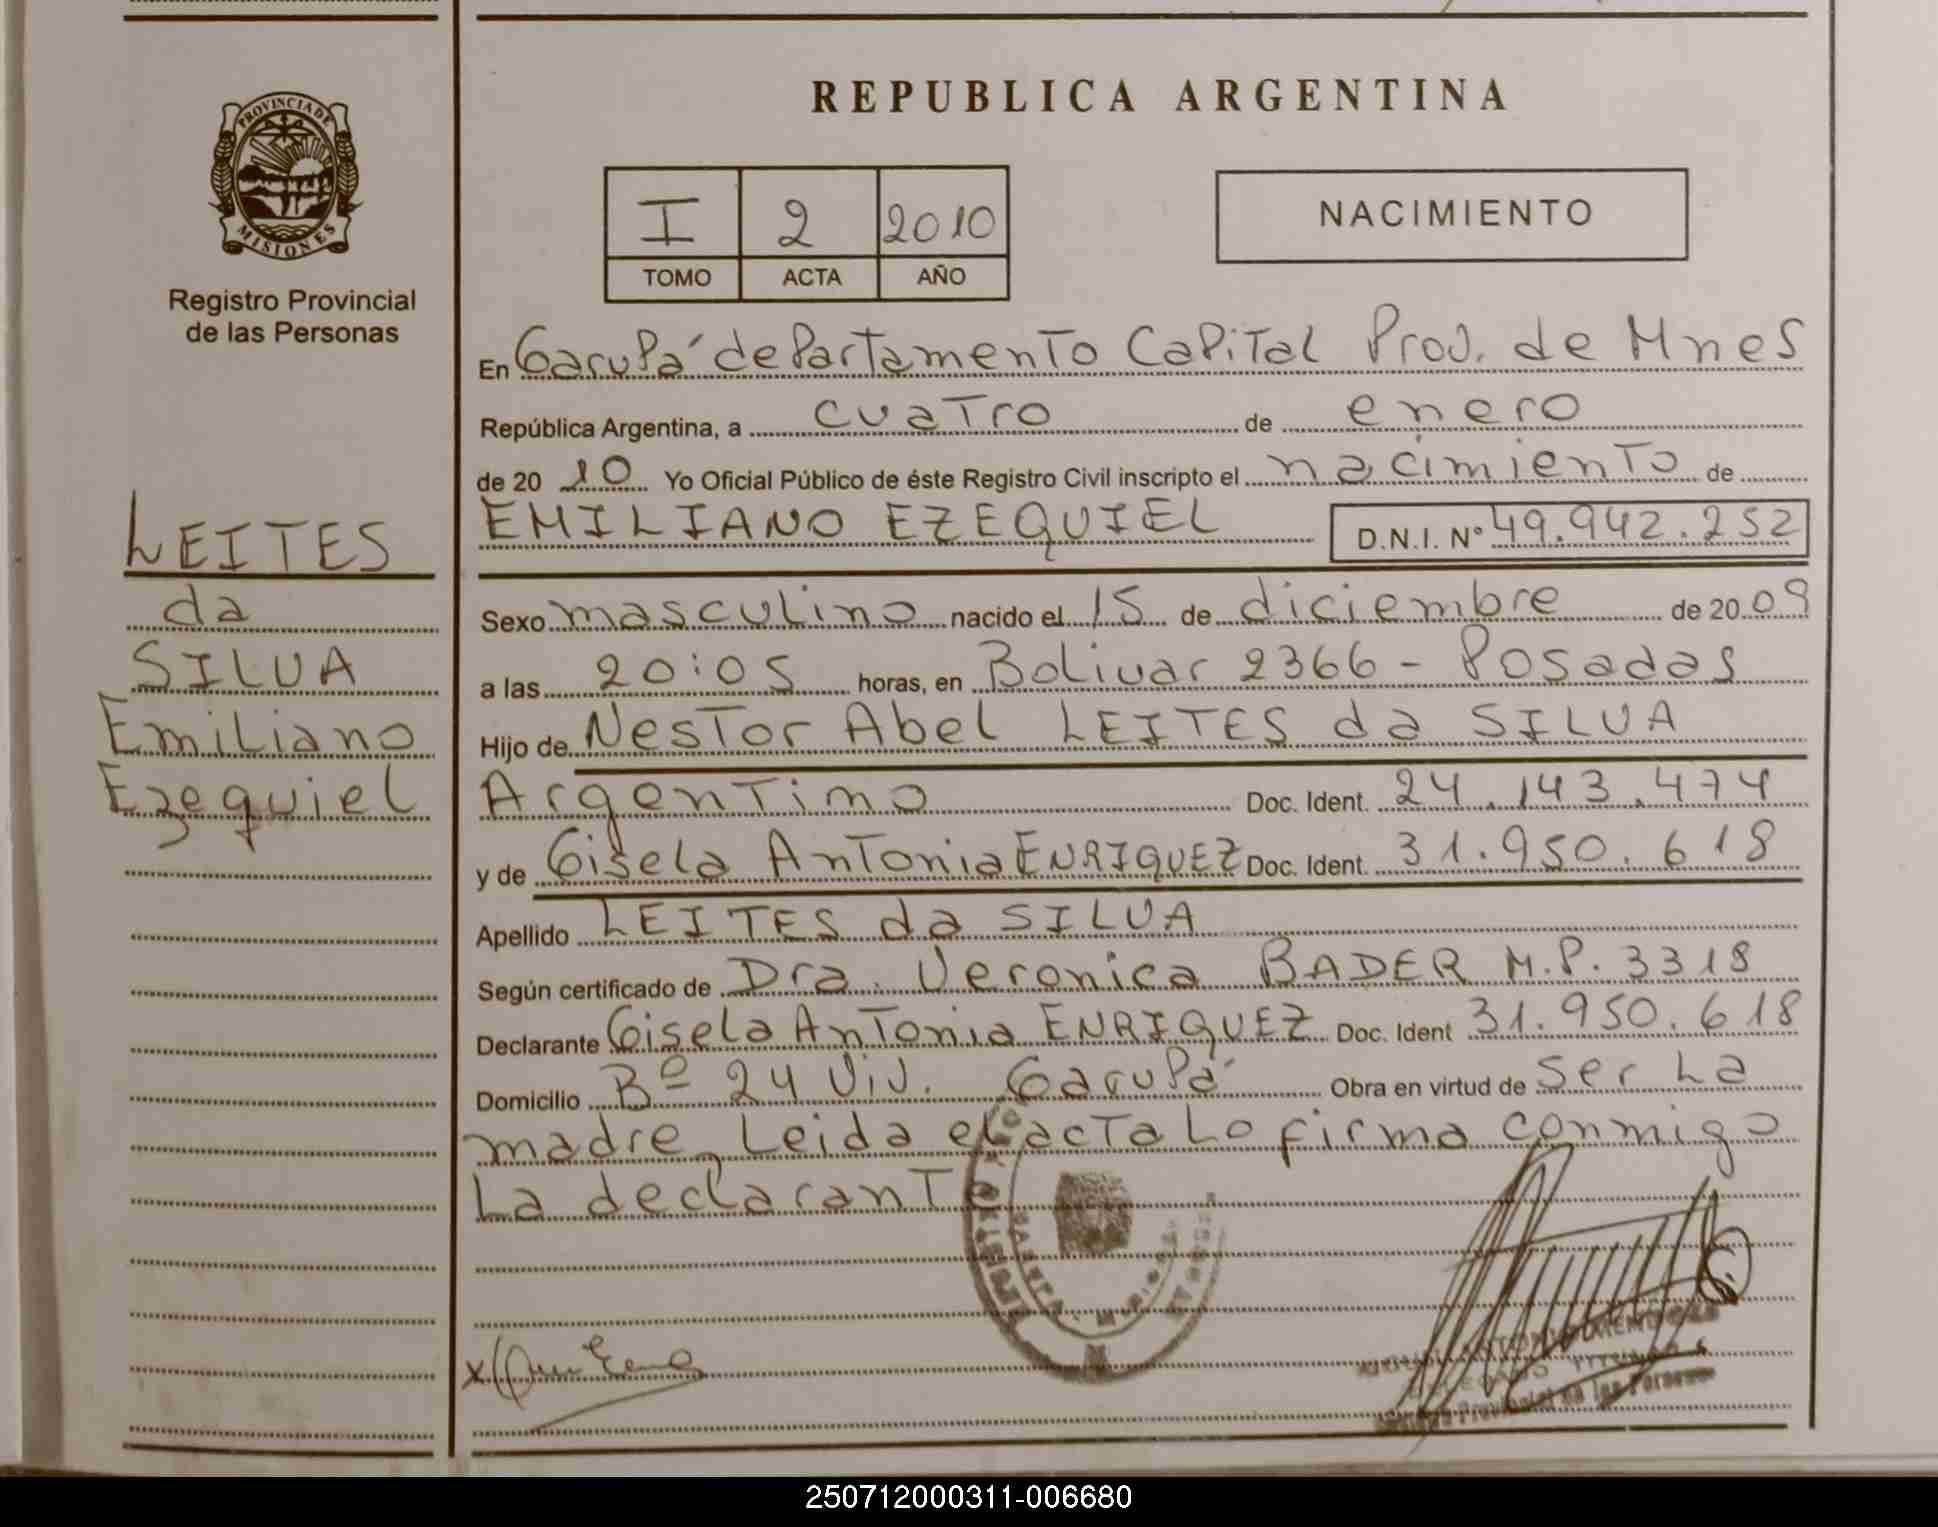 PROVINCIA DE
MISIONES
Registro Provincial
de las Personas
LEITES
da
SILVA
Emiliano
Ezequiel
REPUBLICA ARGENTINA
I 2 2010
TOMO ACTA AÑO
NACIMIENTO
En Garupá departamento Capital Prov. de Mnes
República Argentina, a cuatro de enero
de 20 10 Yo Oficial Público de éste Registro Civil inscripto el nacimiento de
EMILIANO EZEQUIEL D.N.I. N° 49.942.252
Sexo masculino nacido el 15 de diciembre de 20 09
a las 20:05 horas, en Bolivar 2366 - Posadas
Hijo de Nestor Abel LEITES da SILVA
Argentino Doc. Ident. 24.143.474
y de Gisela Antonia ENRIQUEZ Doc. Ident. 31.950.618
Apellido LEITES da SILVA
Según certificado de Dra. Veronica BADER M.P. 3318
Declarante Gisela Antonia ENRIQUEZ Doc. Ident 31.950.618
Domicilio Bº 24 Viv. Garupá Obra en virtud de ser la
madre Leida el acta lo firma conmigo
la declarante
Provincial de las Personas
250712000311-006680